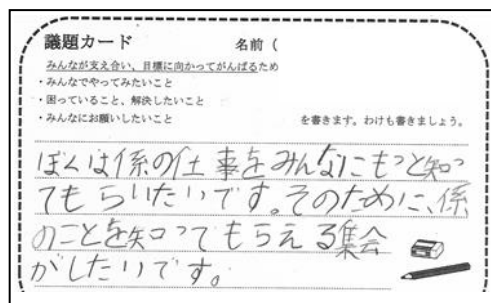 議題カード　　　　　名前（
みんなが支え合い、目標に向かってがんばるため
・みんなでやってみたいこと
・困っていること、解決したいこと
・みんなにお願いしたいこと　　　　　を書きます。わけも書きましょう。
ぼくは係の仕事をみんなにもっと知っ
てもらいたいです。そのために、係
のことを知ってもらえる集会
がしたいです。